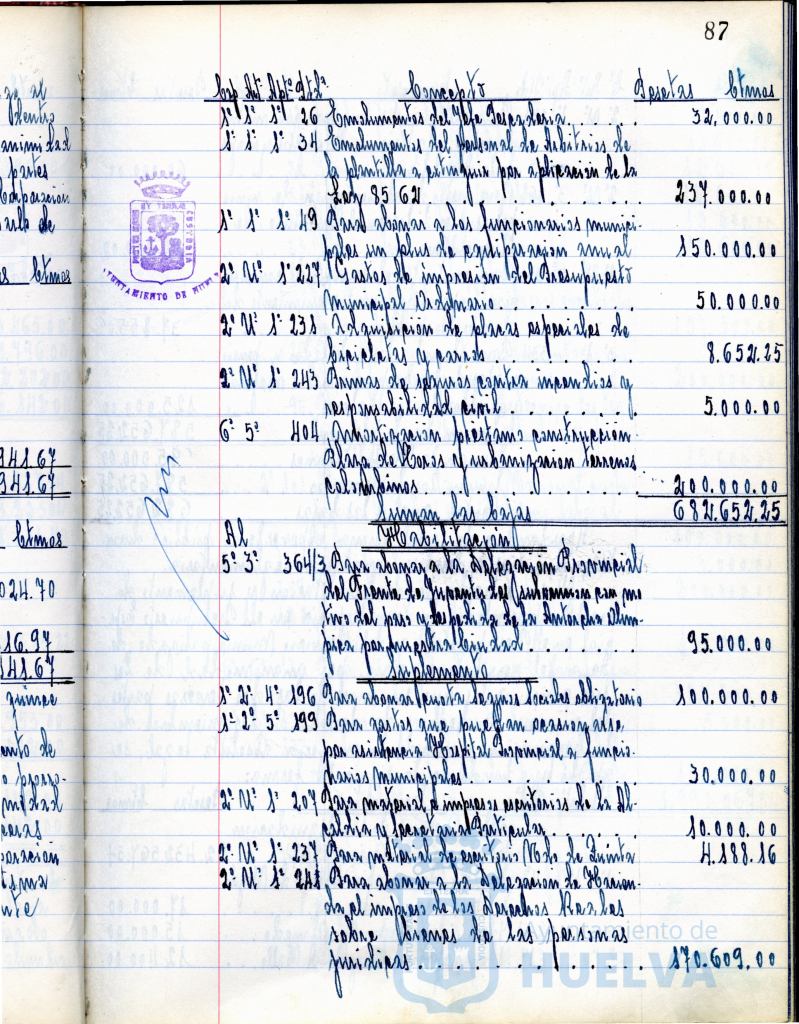 87
Cap Art. Aptº Ptdª Concepto Pesetas Ctmos
1º 1º 1º 26 Emolumentos del Jefe Pescadería . . . 32,000.00
1º 1º 1º 34 Emolumentos del personal de Arbitrios de
la plantilla a extinguir por aplicación de la
Ley 85/62 . . . 237.000.00
1º 1º 1º 49 Para abonar a los funcionarios munici-
pales un plus de anual 150.000.00
2º Uº 1º 227 Gastos de impresión del Presupuesto
Municipal Ordinario . . . 50.000.00
2º Uº 1º 231 Adquisición de placas especiales de
bicicletas y carros . . . 8.652.25
2º Uº 1º 243 Primas de seguros contra incendios y
responsabilidad civil . . . 5.000.00
6º 5º 404 Amortización préstamo construcción
Plaza de Toros y urbanización terrenos
colombinos . . . 200.000.00
Suman las bajas 682.652.25
Al Habilitación
5º 3º 364/3 Para abonar a la Delegación Provincial
del Frente de Juventudes (subvención con mo-
tivo del paso y despedida de la Antorcha Olím-
pica por nuestra Ciudad . . . 95.000.00
Suplemento
1º 2º 4º 196 Para abonar cuota Seguros Sociales obligatorio 100.000.00
1º 2º 5º 199 Para gastos que puedan ocasionarse
por asistencia Hospital Provincial a funcio-
narios municipales 30.000.00
2º Uº 1º 207 Para material e impresos escritorios de la Al-
caldía y Secretaría Particular . . . 10.000.00
2º Uº 1º 237 Para material de escritorio Ngdo de Quinta 4.188.16
2º Uº 1º 241 Para abonar a la Delegación de Hacien-
da el impreso de los Derechos Reales
sobre bienes de las personas
jurídicas . . . 170.609,00
AYUNTAMIENTO DE HUELVA
Ayuntamiento de
HUELVA
941.67
941.67
Ctmos
024.70
16.97
141.67
quince